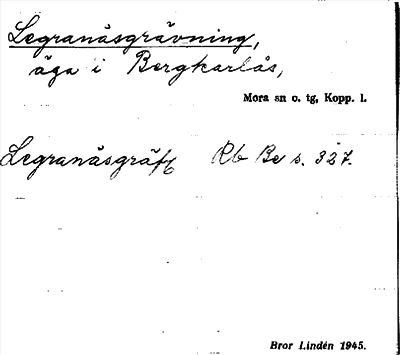 Legranäsgrävning,
äga i Bergkarlås,
Mora sn o. tg, Kopp. l.
Legranäsgräft Rb Be s. 327.
Bror Lindén 1945.